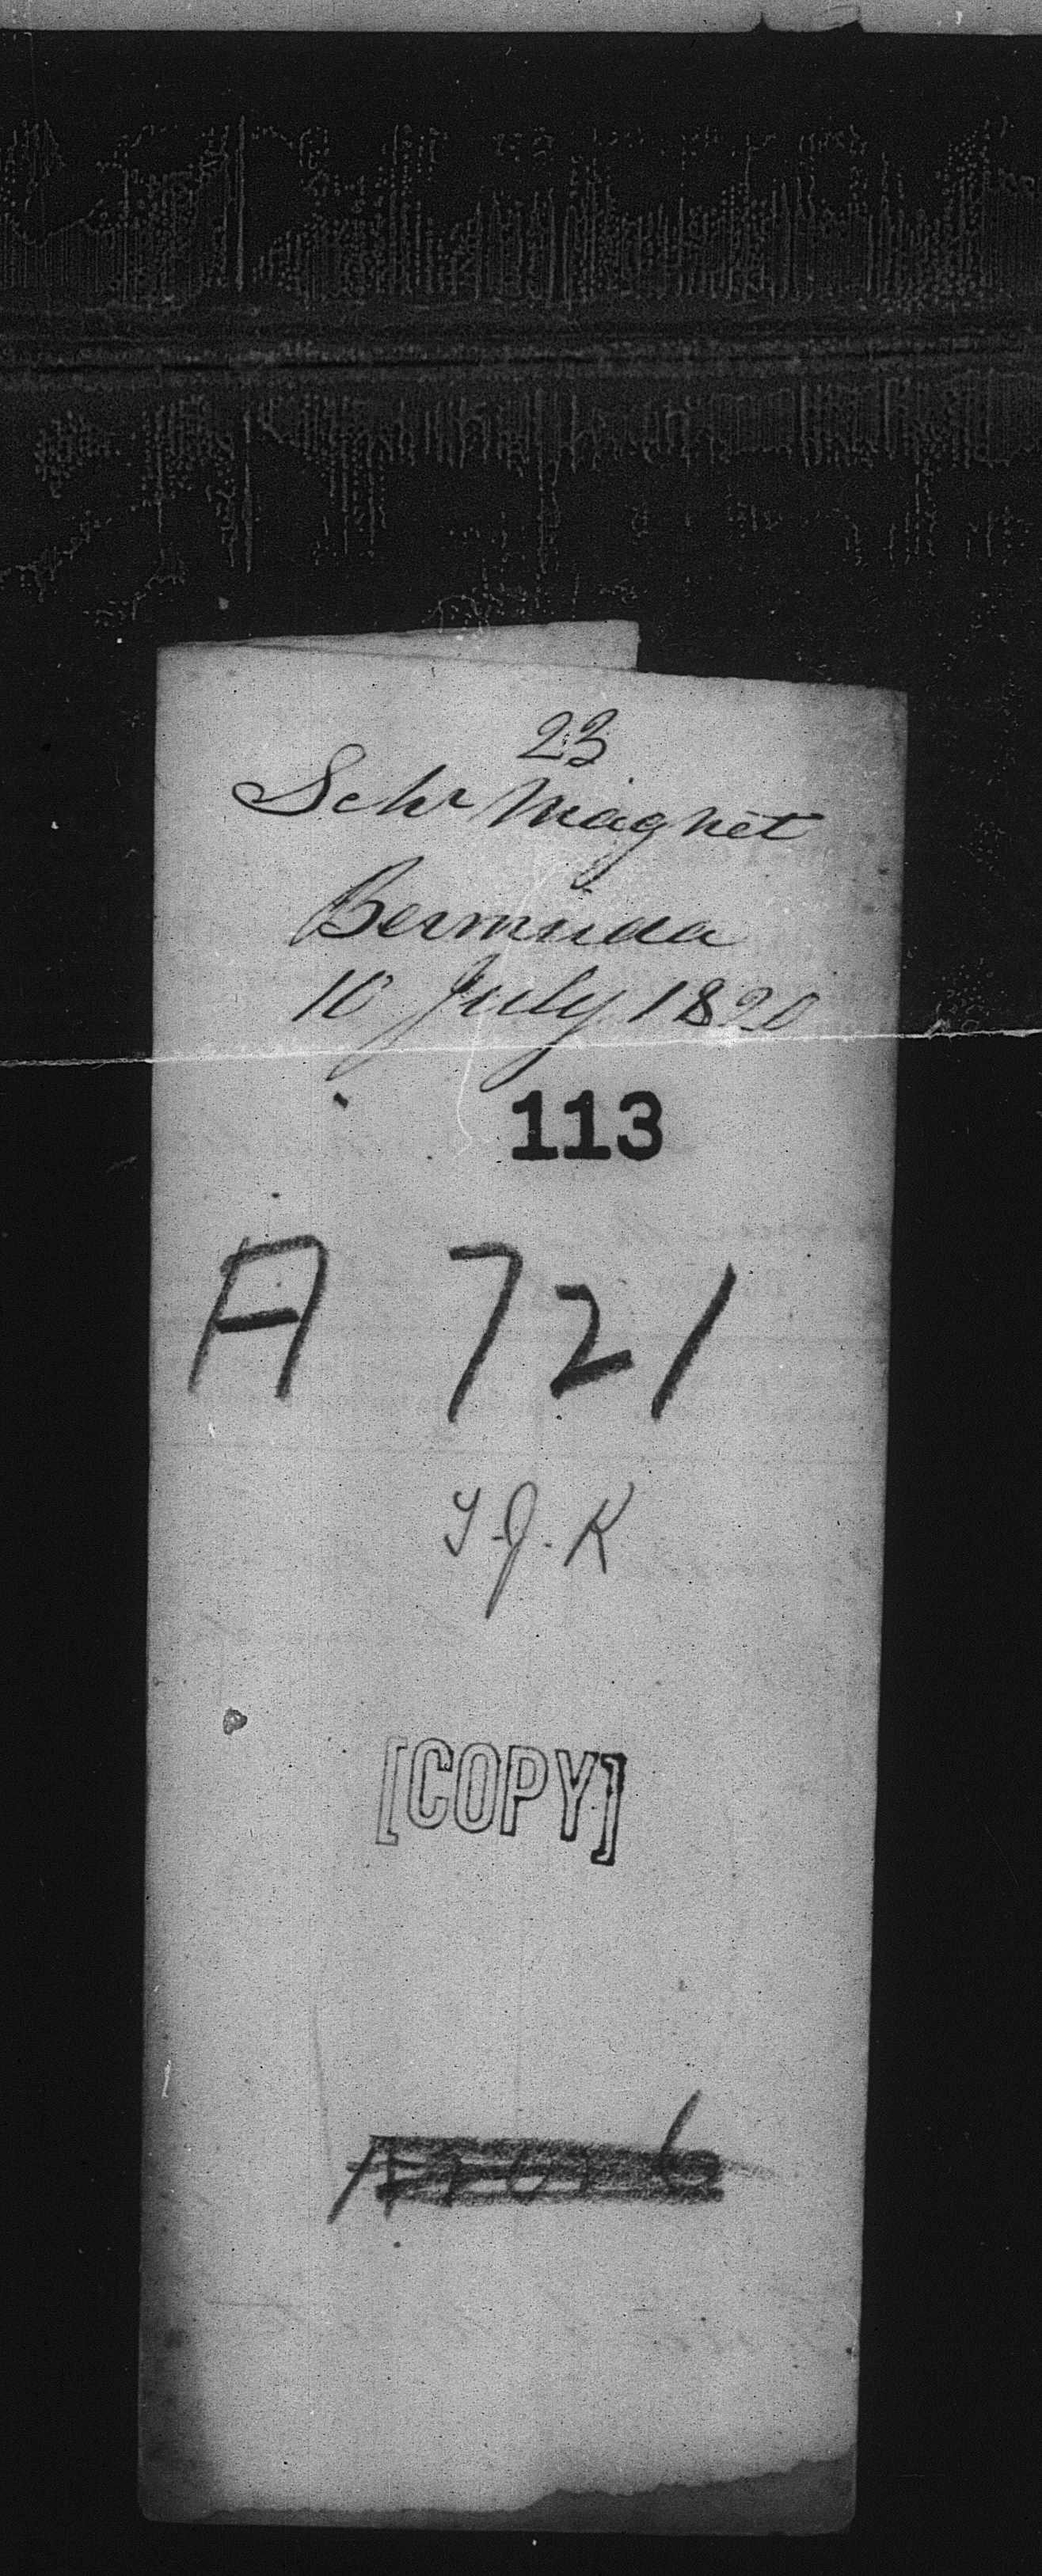 23
Schr Magnet
Bermuda
10 July 1820
113
A 721
T.J.K
[COPY]